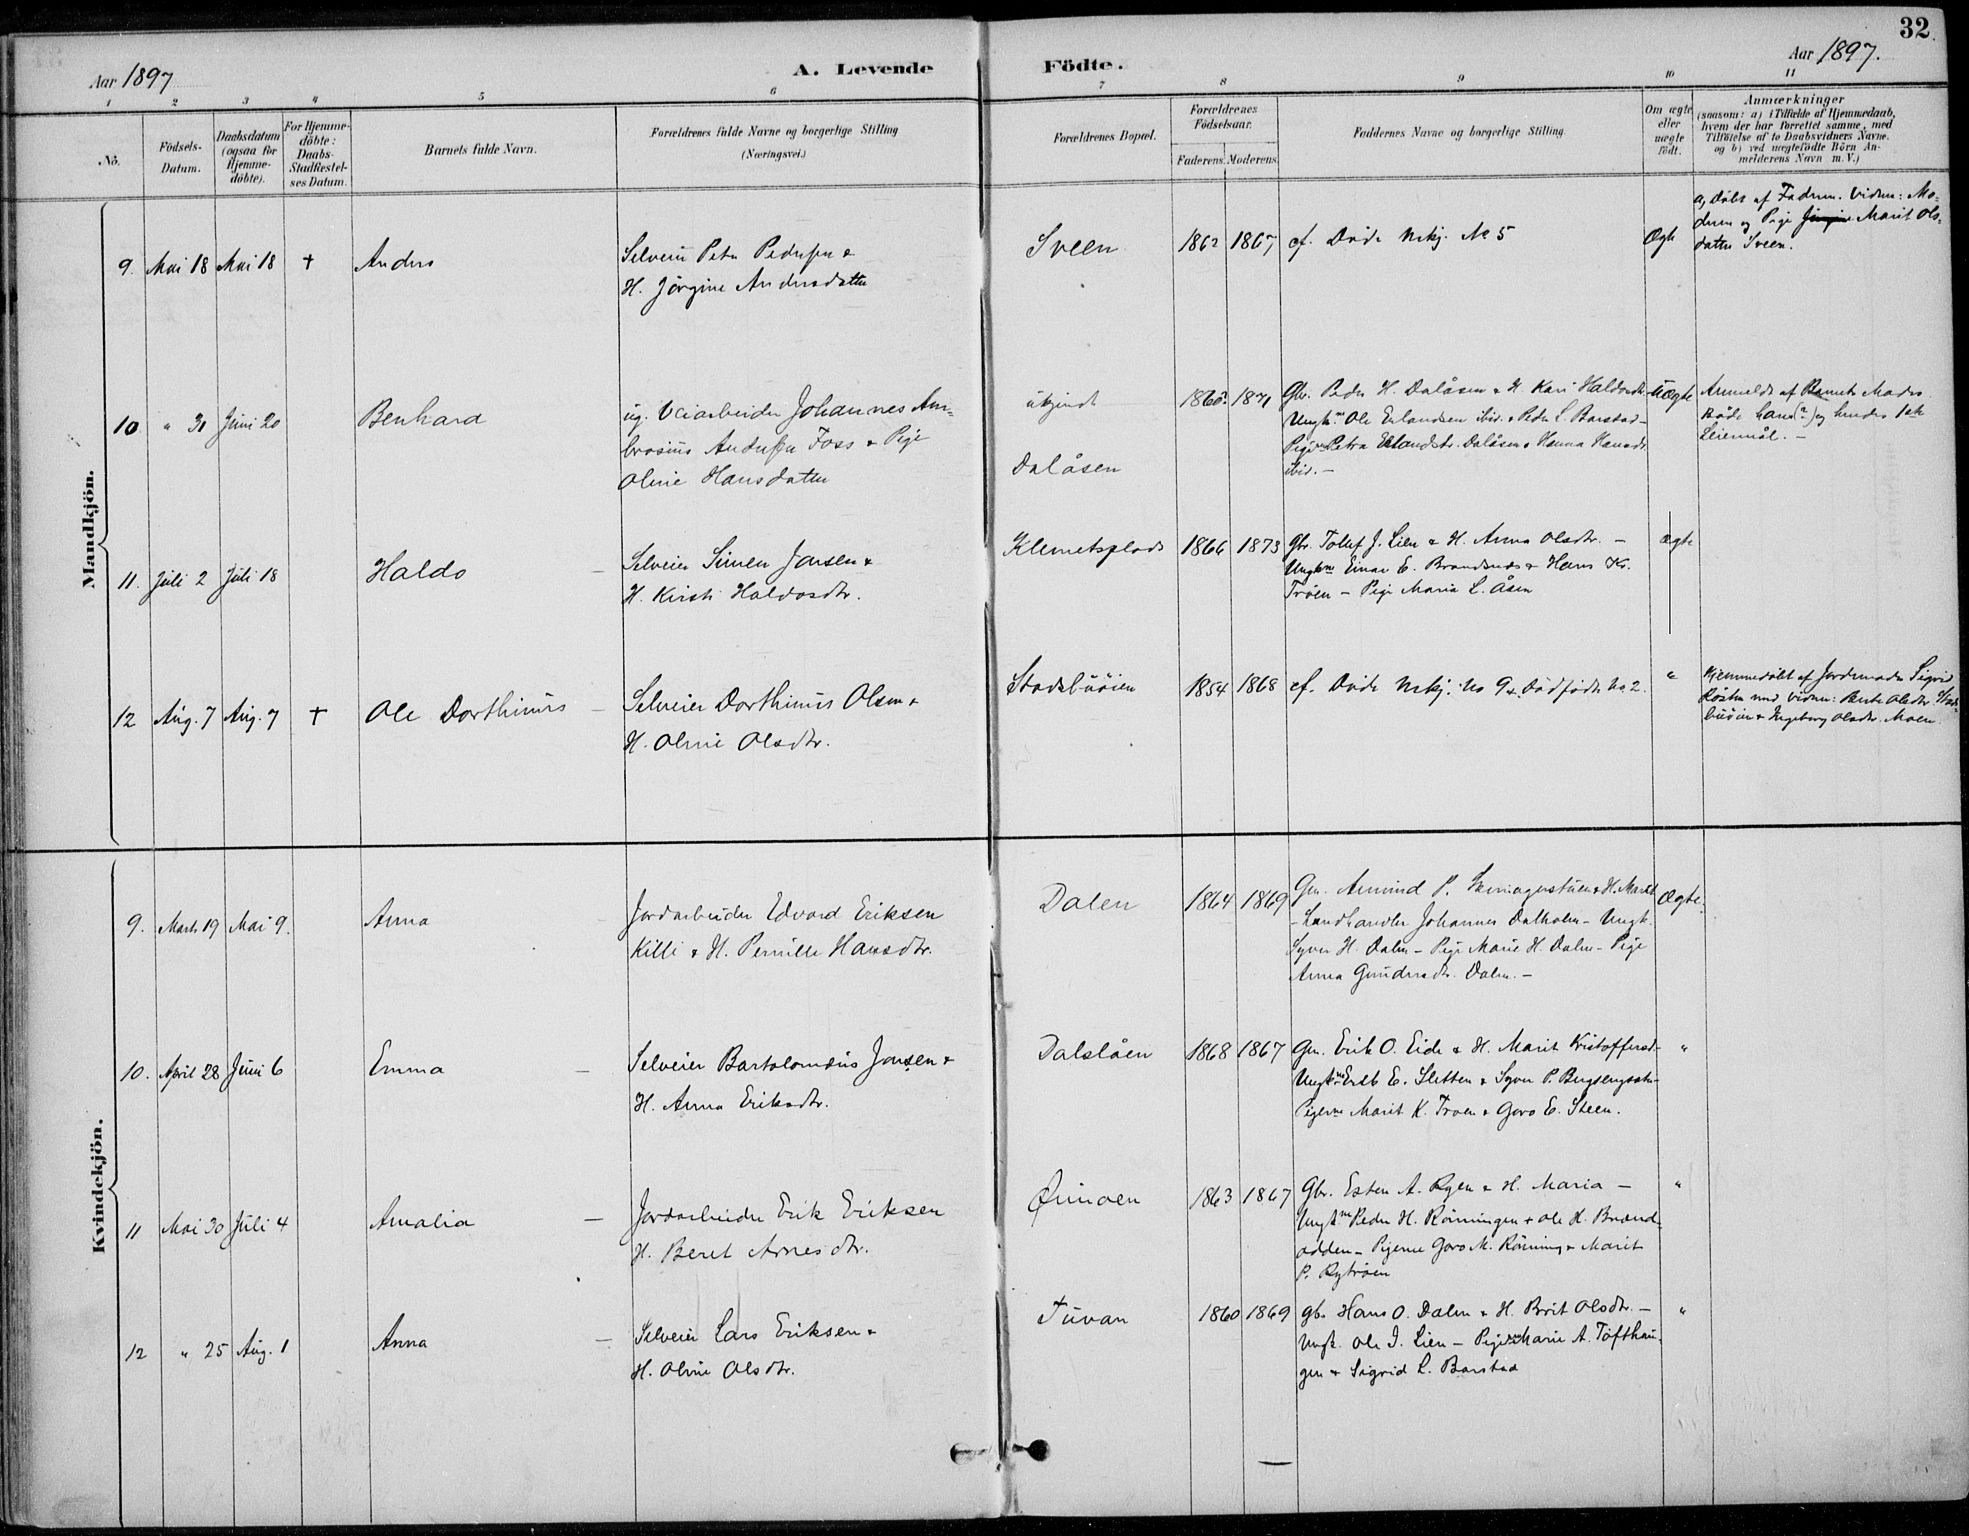 32.
Aar 1897 A. Levende Födte. Aar 1897.
1 2 3 4 5 6 7 8 9 10 11
No.
Födsels-
Datum.
Daabsdatum
(ogsaa for
Hjemme-
döbte).
For Hjemme-
döbte:
Daabs-
Stadfæstel-
ses Datum.
Barnets fulde Navn.
Forældrenes fulde Navne og borgerlige Stilling
(Næringsvei.)
Forældrenes Bopæl.
Forældrenes
Födselsaar.
Faderens. Moderens.
Faddernes Navne og borgerlige Stilling.
Om ægte
eller
uægte
födt.
Anmærkninger
(saasom: a) i Tilfælde af Hjemmedaab,
hvem der har forrettet samme, med
Tilföielse af to Daabsvidners Navne.
og b) ved uægtefödte Börn An-
melderens Navn m. V.)
Mandkjön.
9. Mai 18 Mai 18 + Anders
Selveier Peter Pedersen &
H. Jörgine Andersdatter
Sveen 1862 1867 cf. Döde Mkj. No 5 Ægte
a, Döbt af Faderen. Vidner: Mo-
deren og Pige Marit Ols-
datter Sveen.
10 " 31 Juni 20 Benhard
ug. Veiarbeider Johannes Am-
brosius Andersen Foss & Pige
Oline Hansdatter
ukjendt
Dalåsen
1860? 1871
Gbr. Peder H. Dalåsen & H. Kari Haldosdtr.
Ungk.m Ole Erlandsen ibid. & Peder L. Barstad -
Pigerne Petra Erlandsdtr. Dalåsen & Hanna Hansdtr.
ibid. -
Uægte
Anmeldt af Barnets Moder.
Både hans (?) og hendes 1ste
Leiermål. -
11. Juli 2 Juli 18 Haldo -
Selveier Simen Jonsen &
H. Kirsti Haldosdtr.
Klemetsplads 1866 1873
Gbr. Tollef J. Lien & H. Anna Olsdtr. -
Ungkm Einar E. Brandsnes & Hans Kr.
Tröen - Pige Maria L. Åsen
Ægte
12 Aug. 7 Aug. 7 + Ole Dorthinus -
Selveier Dorthinus Olsen &
H. Oline Olsdtr.
Stadsbuöien 1854 1868 cf. Döde Mkj. No 9 & Dödfödte No 2. "
Hjemmedöbt af Jordemoder Sigrid
Kösten med Vidner: Berte Olsdtr. Stads-
buöien & Ingeborg Olsdtr. Moen.
Kvindekjön.
9. Marts 19 Mai 9. Anna -
Jordarbeider Edvard Eriksen
Killi & H. Pernille Hansdtr.
Dalen 1864 1869
Gm. Amund P. & H. Marit
- Landhandler Johannes Dalholm - Ungk.
Syver H. Dalen - Pige Marie H. Dalen - Pige
Anna Gundersdtr. Dalen. -
Ægte.
10. April 28 Juni 6 Emma -
Selveier Bartolomæus Jonsen &
H. Anna Eriksdtr.
Dalslåen 1868 1867
Gm. Erik O. Eide & H. Marit Kristoffersd. -
Ungkm Erik E. Sletten & Syver P. -
Pigerne Marit K. Troen & Goro E. Steen.
"
11 Mai 30 Juli 4 Amalia -
Jordarbeider Erik Eriksen
H. Beret Arnesdtr.
Öimoen 1863 1867
Gbr. Esten A. Ryen & H. Maria -
Ungk.m Peder H. Rönningen & Ole H. Brænd-
odden - Pigerne Goro M. Rönning & Marit
P. Rytröen
"
12 " 25 Aug. 1 Anna -
Selveier Lars Eriksen &
H. Oline Olsdtr.
Tuvan 1860 1869
Gbr. Hans O. Dalen & H. Brit Olsdtr. -
Ungk. Ole J. Lien - Pigerne Marie A. Töfthau-
gen & Sigrid L. Barstad
"